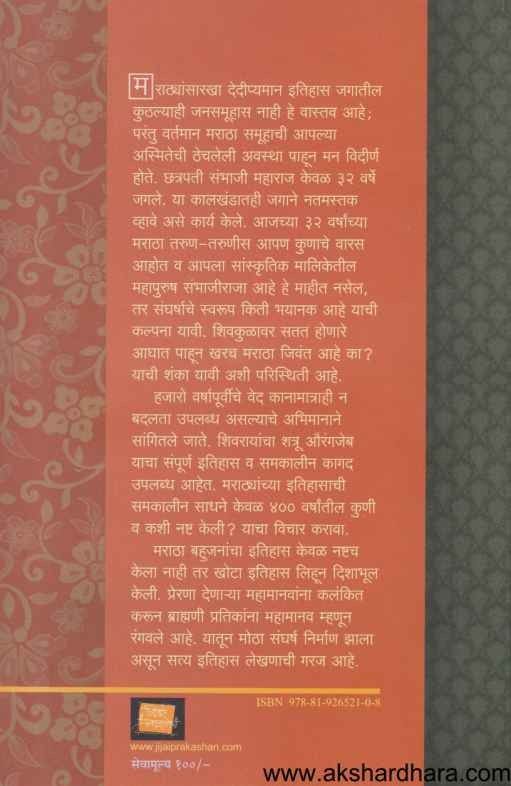 मराठ्यांसारखा देदीप्यमान इतिहास जगातील
कुठल्याही जनसमूहास नाही हे वास्तव आहे;
परंतु वर्तमान मराठा समूहाची आपल्या
अस्मितेची ठेचलेली अवस्था पाहून मन विदीर्ण
होते. छत्रपती संभाजी महाराज केवळ ३२ वर्षे
जगले. या कालखंडातही जगाने नतमस्तक
व्हावे असे कार्य केले. आजच्या ३२ वर्षांच्या
मराठा तरुण-तरुणीस आपण कुणाचे वारस
आहोत व आपला सांस्कृतिक मालिकेतील
महापुरुष संभाजीराजा आहे हे माहीत नसेल,
तर संघर्षाचे स्वरूप किती भयानक आहे याची
कल्पना यावी. शिवकुळावर सतत होणारे
आघात पाहून खरच मराठा जिवंत आहे का?
याची शंका यावी अशी परिस्थिती आहे.
हजारो वर्षापूर्वीचे वेद कानामात्राही न
बदलता उपलब्ध असल्याचे अभिमानाने
सांगितले जाते. शिवरायांचा शत्रू औरंगजेब
याचा संपूर्ण इतिहास व समकालीन कागद
उपलब्ध आहेत. मराठ्यांच्या इतिहासाची
समकालीन साधने केवळ ४०० वर्षांतील कुणी
व कशी नष्ट केली? याचा विचार करावा.
मराठा बहुजनांचा इतिहास केवळ नष्टच
केला नाही तर खोटा इतिहास लिहून दिशाभूल
केली. प्रेरणा देणाऱ्या महामानवांना कलंकित
करून ब्राह्मणी प्रतिकांना महामानव म्हणून
रंगवले आहे. यातून मोठा संघर्ष निर्माण झाला
असून सत्य इतिहास लेखणाची गरज आहे.
ISBN 978-81-926521-0-8
www.jijaiprakashan.com
सेवामूल्य १००/-
www.akshardhara.com